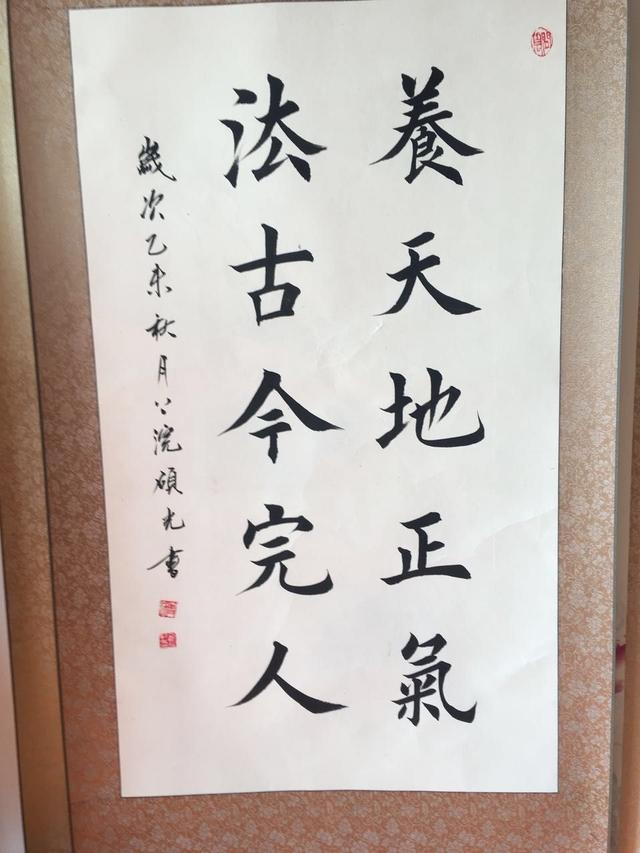 養天地正氣
法古今完人
歲次乙未秋月
碩光書